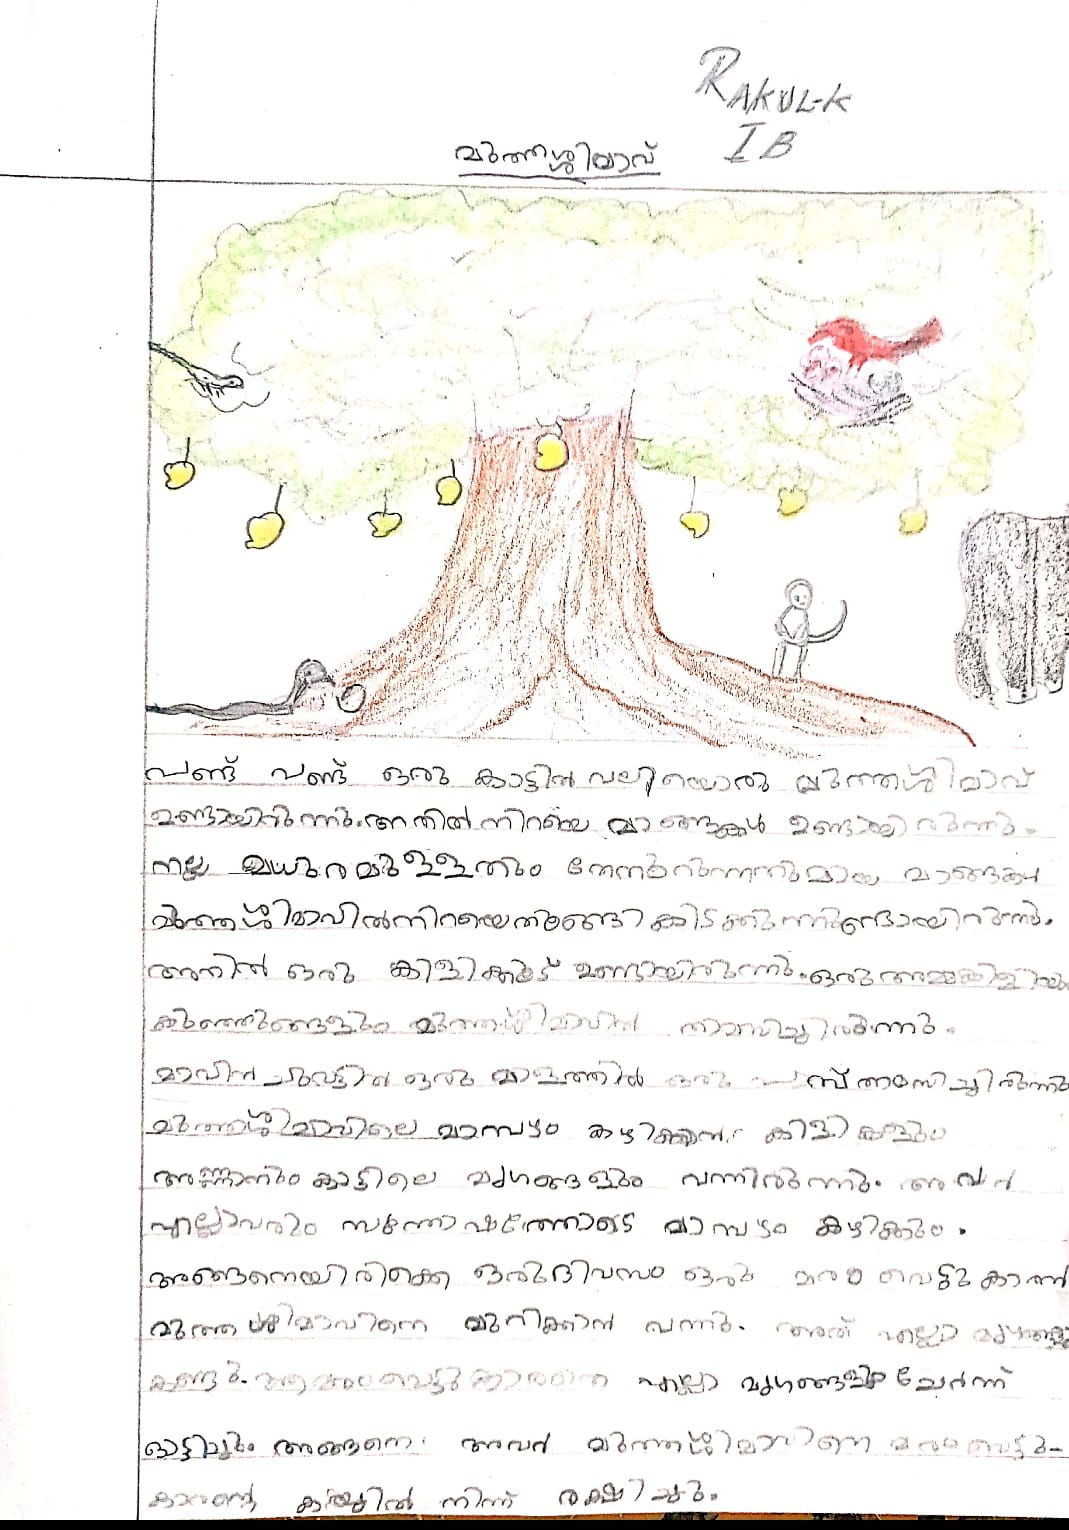 RAKUL-K
I B
മുത്തശ്ശിമാവ്
പണ്ട് പണ്ട് ഒരു കാട്ടിൽ വലിയൊരു മുത്തശ്ശിമാവ്
ഉണ്ടായിരുന്നു. അതിൽ നിറയെ മാങ്ങകൾ ഉണ്ടായിരുന്നു.
നല്ല മധുരമുള്ളതും തേനൂറുന്നതുമായ മാങ്ങകൾ
മുത്തശ്ശിമാവിൽ നിറയെ തൂങ്ങി കിടക്കുന്നുണ്ടായിരുന്നു.
അതിൽ ഒരു കിളിക്കൂട് ഉണ്ടായിരുന്നു. ഒരു അമ്മക്കിളിയും
കുഞ്ഞുങ്ങളും മുത്തശ്ശിമാവിൽ താമസിച്ചിരുന്നു.
മാവിൻ ചുവട്ടിൽ ഒരു മാളത്തിൽ ഒരു പാമ്പ് താമസിച്ചിരുന്നു
മുത്തശ്ശിമാവിലെ മാമ്പഴം കഴിക്കുവാൻ കിളികളും
അണ്ണാനും കാട്ടിലെ മൃഗങ്ങളും വന്നിരുന്നു. അവർ
എല്ലാവരും സന്തോഷത്തോടെ മാമ്പഴം കഴിക്കും.
അങ്ങനെയിരിക്കെ ഒരുദിവസം ഒരു മരം വെട്ടുകാരൻ
മുത്തശ്ശിമാവിനെ മുറിക്കാൻ വന്നു. അത് എല്ലാ മൃഗങ്ങളും
കണ്ടു. ആ മരംവെട്ടുകാരനെ എല്ലാ മൃഗങ്ങളും ചേർന്ന്
ഓട്ടിച്ചു. അങ്ങനെ അവർ മുത്തശ്ശിമാവിനെ മരംവെട്ടു-
കാരന്റെ കയ്യിൽ നിന്ന് രക്ഷിച്ചു.